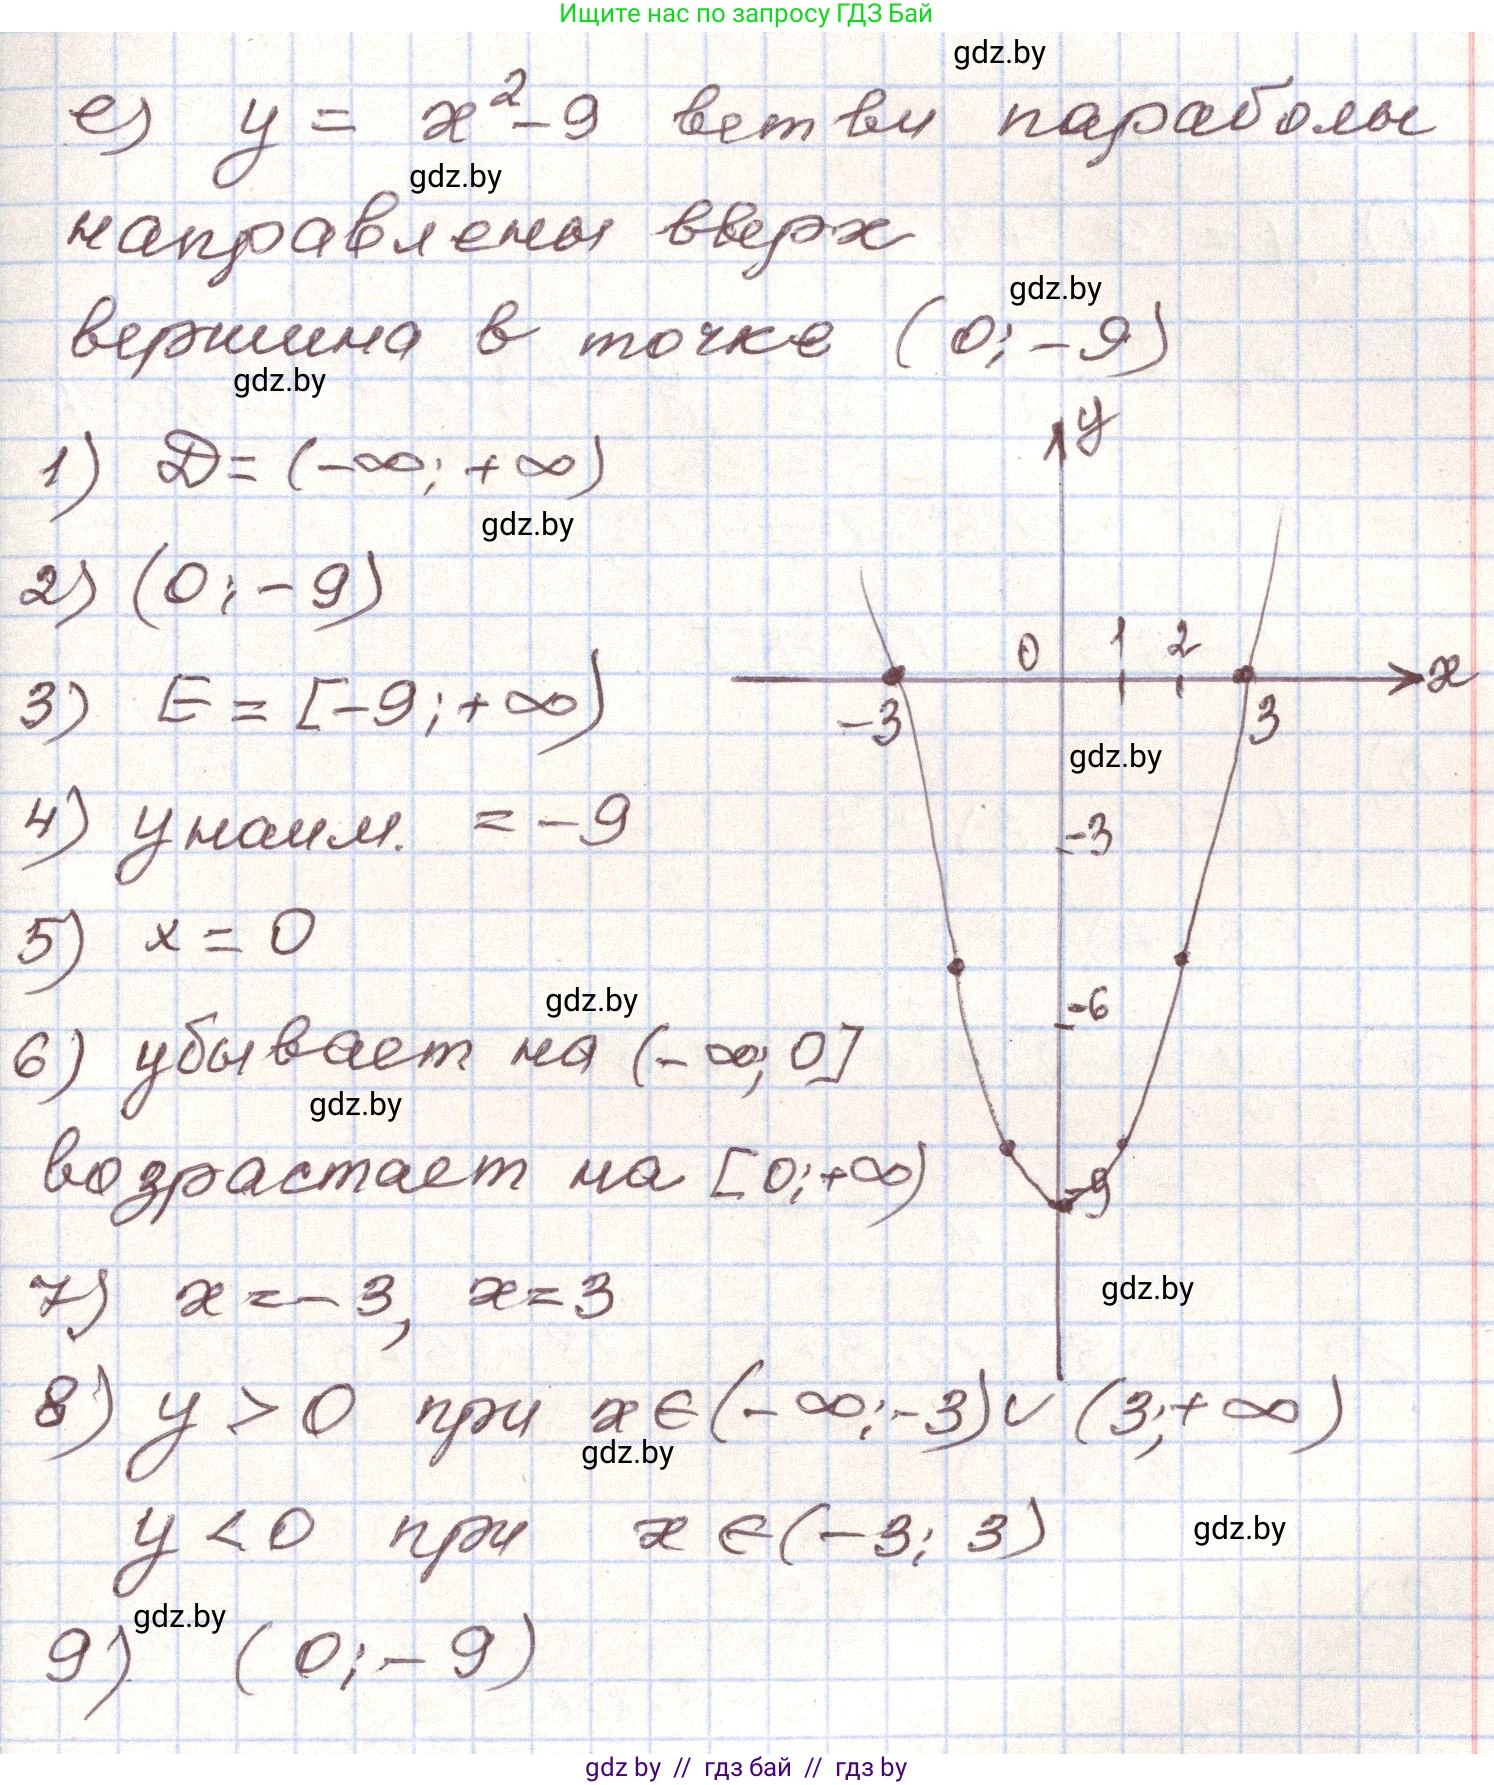 Ищите нас по запросу ГДЗ Бай
gdz.by
е) y = x² - 9 ветви параболы
gdz.by
направлены вверх
gdz.by
вершина в точке (0; -9)
gdz.by
y
1) D = (-∞; +∞)
gdz.by
2) (0; -9)
0 1 2 x
3) E = [-9; +∞)
-3 3
gdz.by
4) y наим. = -9
-3
5) x = 0
gdz.by
-6
6) убывает на (-∞; 0]
gdz.by
возрастает на [0; +∞)
-9
gdz.by
7) x = -3, x = 3
8) y > 0 при x ∈ (-∞; -3) ∪ (3; +∞)
gdz.by
y < 0 при x ∈ (-3; 3)
gdz.by
gdz.by
9) (0; -9)
gdz.by // гдз бай // гдз by